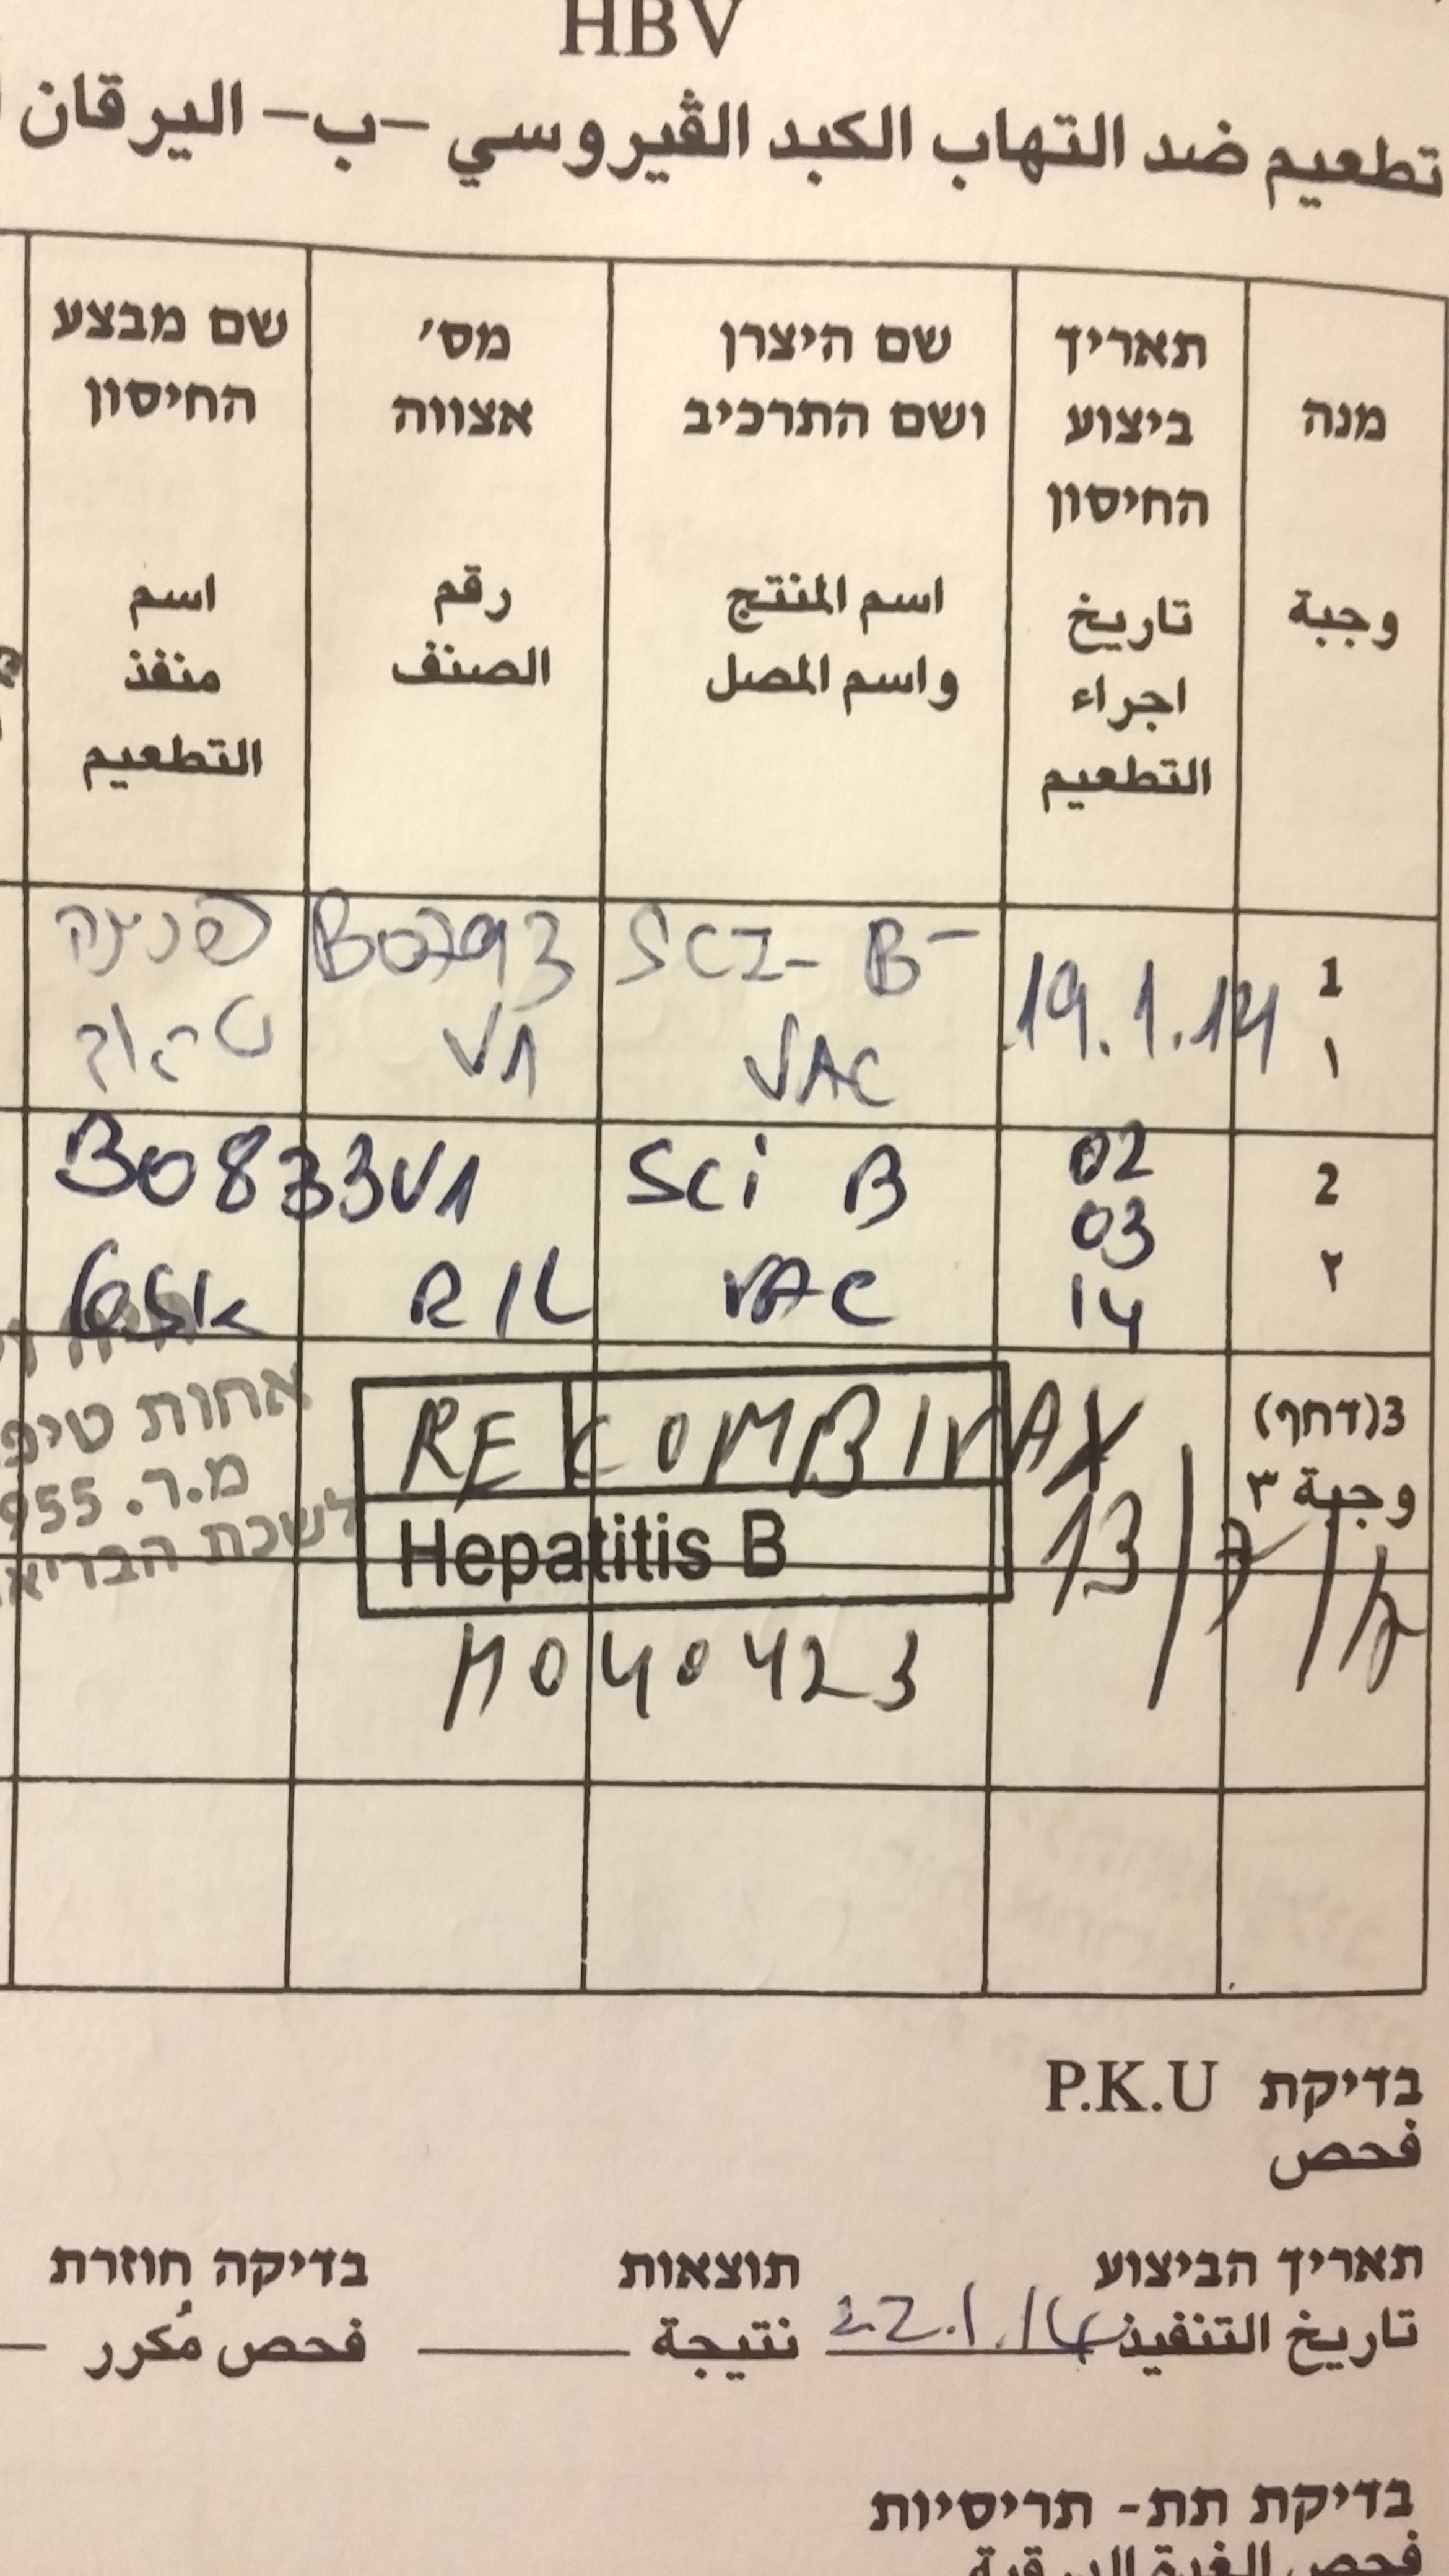 HBV
تطعيم ضد التهاب الكبد الڤيروسي -ب- اليرقان
מנה
תאריך
ביצוע
החיסון
שם היצרן
ושם התרכיב
מס׳
אצווה
שם מבצע
החיסון
وجبة
تاريخ
اجراء
التطعيم
اسم المنتج
واسم المصل
رقم
الصنف
اسم
منفذ
التطعيم
1
١
19.1.14
SCI- B-
VAC
B0793
V1
2
٢
02
03
14
Sci B
VAC
B0833V1
R/L
GSK
3(דחף)
وجبة ٣
RECOMBIVAX
Hepatitis B
13/7/
040423
אחות טיפ
מ.ר. 955
לשכת הבריא
בדיקת P.K.U
فحص
תאריך הביצוע
תוצאות
בדיקה חוזרת
تاريخ التنفيذ 22.1.14
نتيجة
فحص مُكرر
בדיקת תת- תריסיות
فحص الغدة الدرقية